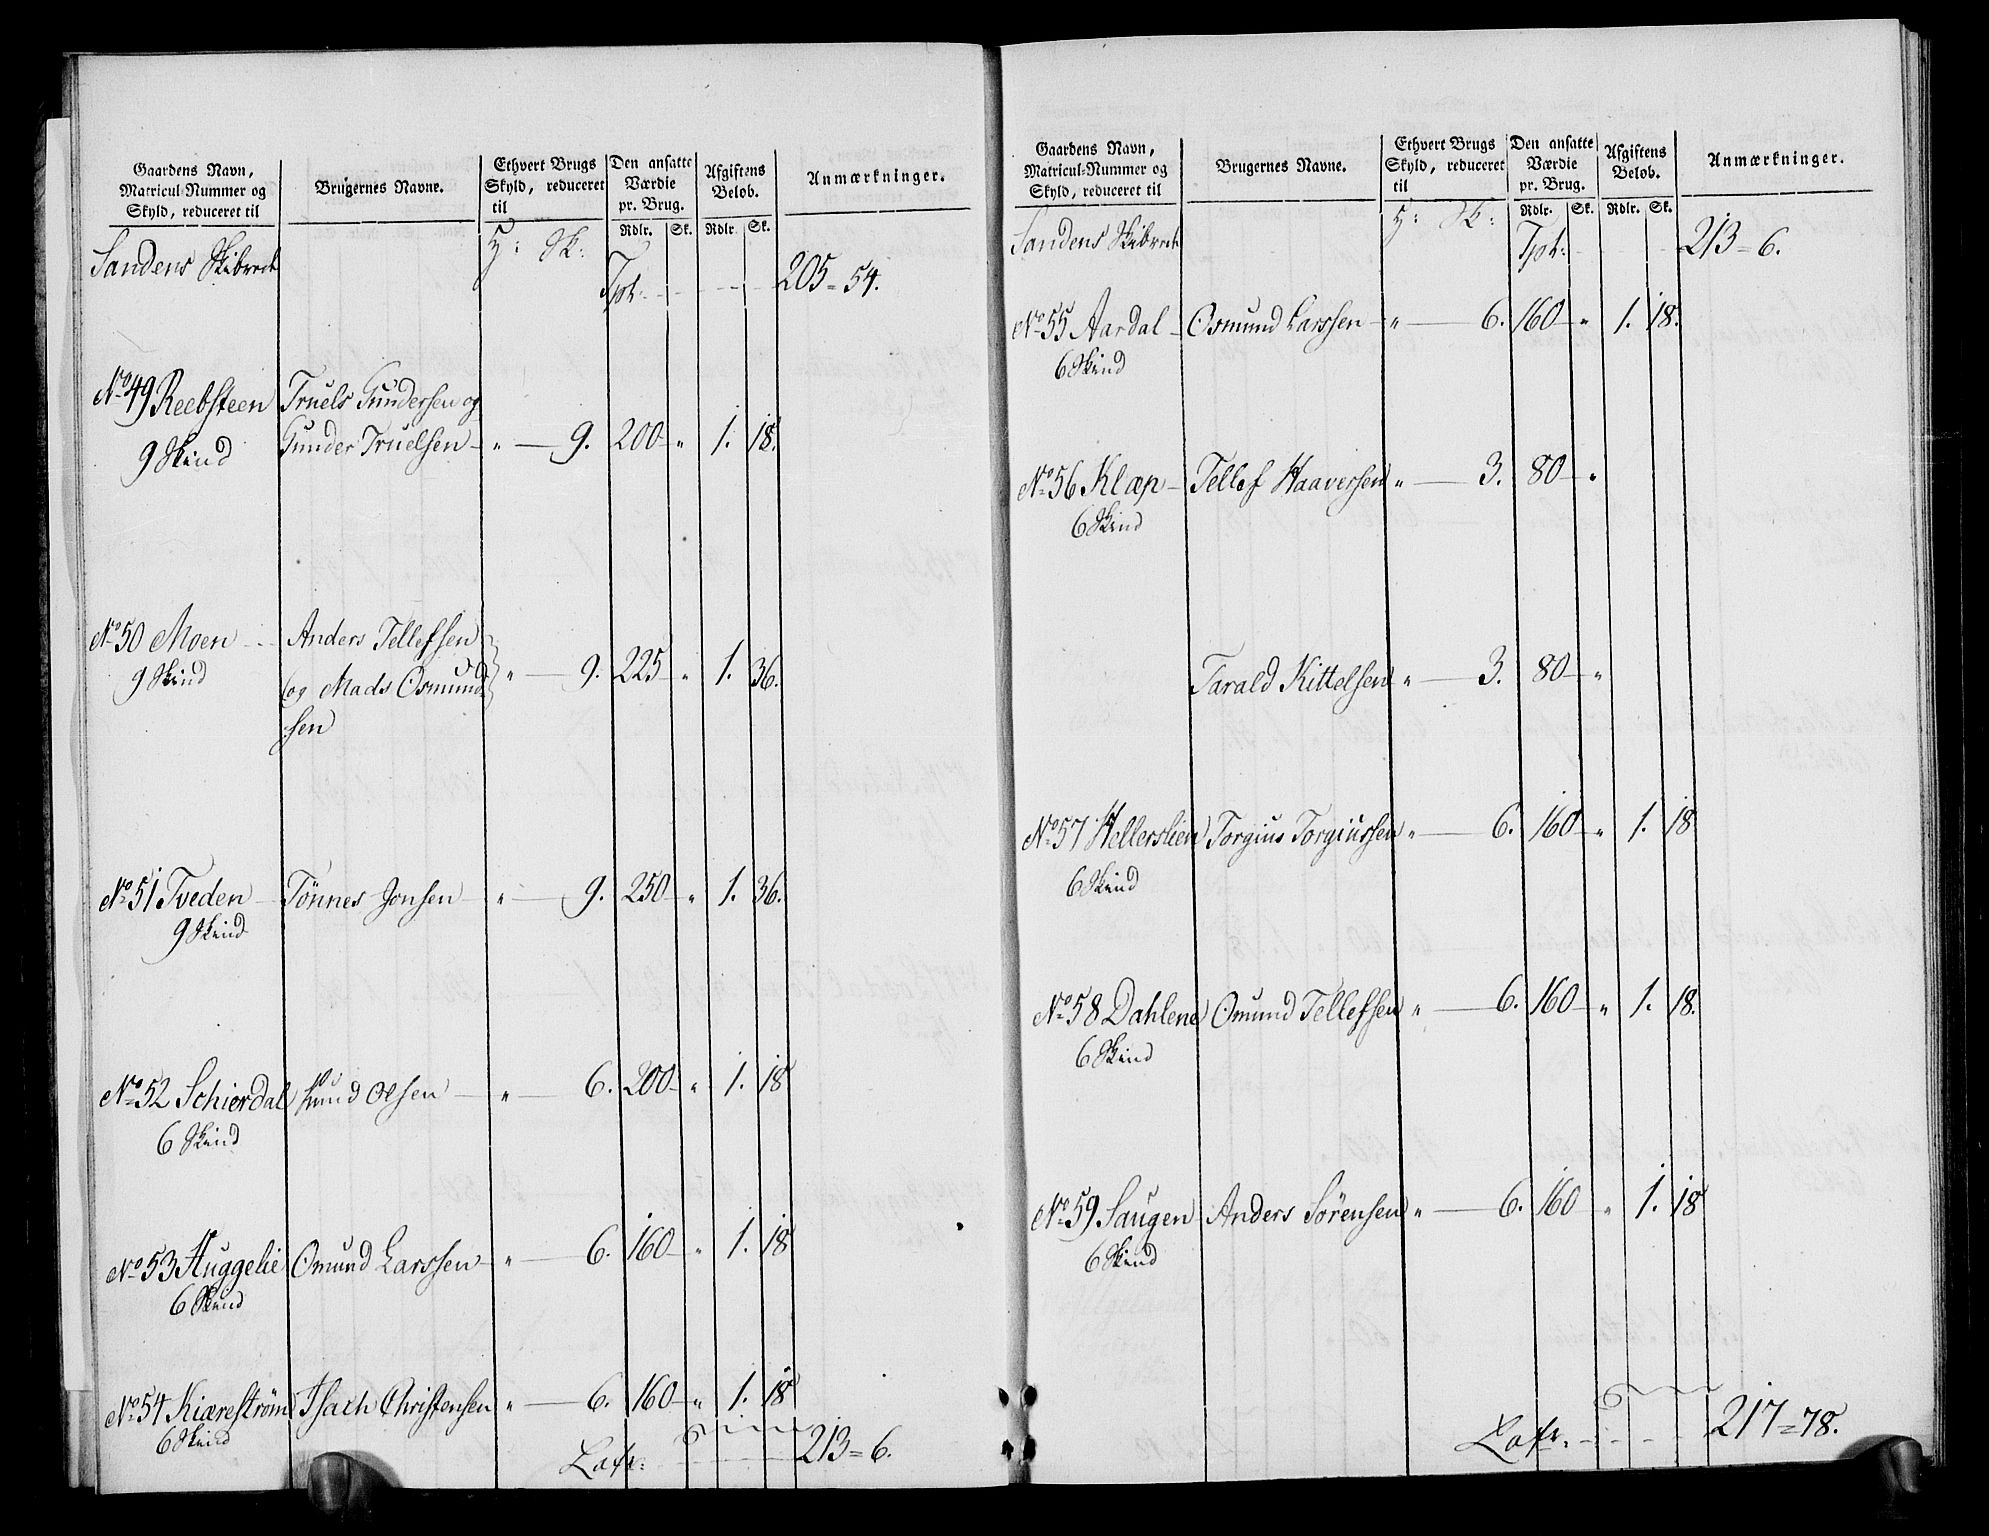 Gaardens Navn,
Matricul-Nummer og
Skyld, reduceret til
Brugernes Navne.
Ethvert Brugs
Skyld, reduceret
til
Den ansatte
Værdie
pr. Brug.
Afgiftens
Beløb.
Anmærkninger.
Rdlr. Sk. Rdlr. Sk.
H: Sk:
Sandens Skibrede
Tpt: 205 = 54.
No 49 Reebsteen Truels Gundersen og
9 Skind Gunder Truelsen - " - 9. 200 - " 1. 18.
No 50 Moen Anders Tellefsen
9 Skind og Mads Osmund " - 9. 225 - " 1. 36.
sen
No 51 Tveden - Tönnes Jonsen - " - 9. 250 " 1. 36.
9 Skind
No 52 Schierdal Knud Olsen - " - 6. 200 - " 1. 18
6 Skind
No 53 Huggelie Omund Larssen - " - 6. 160 - " 1. 18
6 Skind
No 54 Kiærestrøm Isach Christensen " - 6. 160 - " 1. 18
6 Skind
Latr: 213 = 6.
Gaardens Navn,
Matricul-Nummer og
Skyld, reduceret til
Brugernes Navne.
Ethvert Brugs
Skyld, reduceret
til
Den ansatte
Værdie
pr. Brug.
Afgiftens
Beløb.
Anmærkninger.
Rdlr. Sk. Rdlr. Sk.
H: Sk:
Sandens Skibrede
Tpt: 213 = 6.
No 55 Aardal - Osmund Larssen - " - 6. 160 - " 1. 18.
6 Skind
No 56 Klæp - Tellef Haaversen " - 3. 80 - "
6 Skind
Tarald Kittelsen " - 3. 80 - "
No 57 Hellerslien Torgius Torgiussen " - 6. 160 - " 1. 18
6 Skind
No 58 Dahlene Omund Tellefsen " - 6. 160 - " 1. 18.
6 Skind
No 59 Saugen Anders Sörensen " - 6. 160 " 1. 18
6 Skind
Latr: 217 = 78.